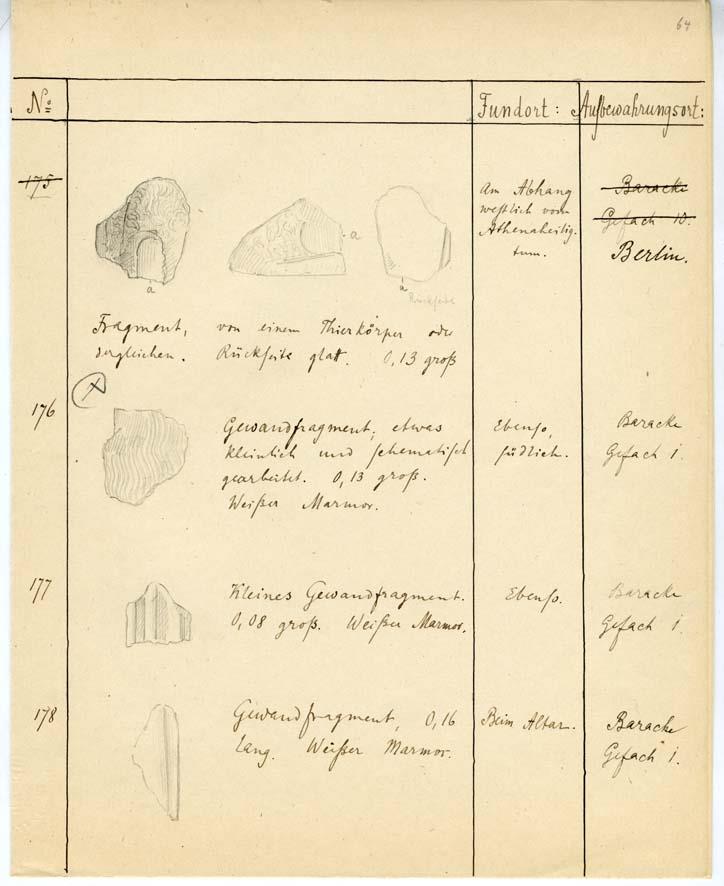 64
No: Fundort: Aufbewahrungsort:
175
Am Abhang
westlich vom
Athenaheilig-
tum.
Baracke
Gefach 10.
Berlin.
a
a
a
Rückseite
Fragment, von einem Thierkörper oder
dergleichen. Rückseite glatt. 0,13 groß
176
Gewandfragment, etwas
kleinlich und schematisch
gearbeitet. 0,13 groß.
Weißer Marmor.
Ebenso,
südlich.
Baracke
Gefach 1.
177
Kleines Gewandfragment.
0,08 groß. Weißer Marmor.
Ebenso.
Baracke
Gefach 1.
178
Gewandfragment, 0,16
lang. Weißer Marmor.
Beim Altar.
Baracke
Gefach 1.